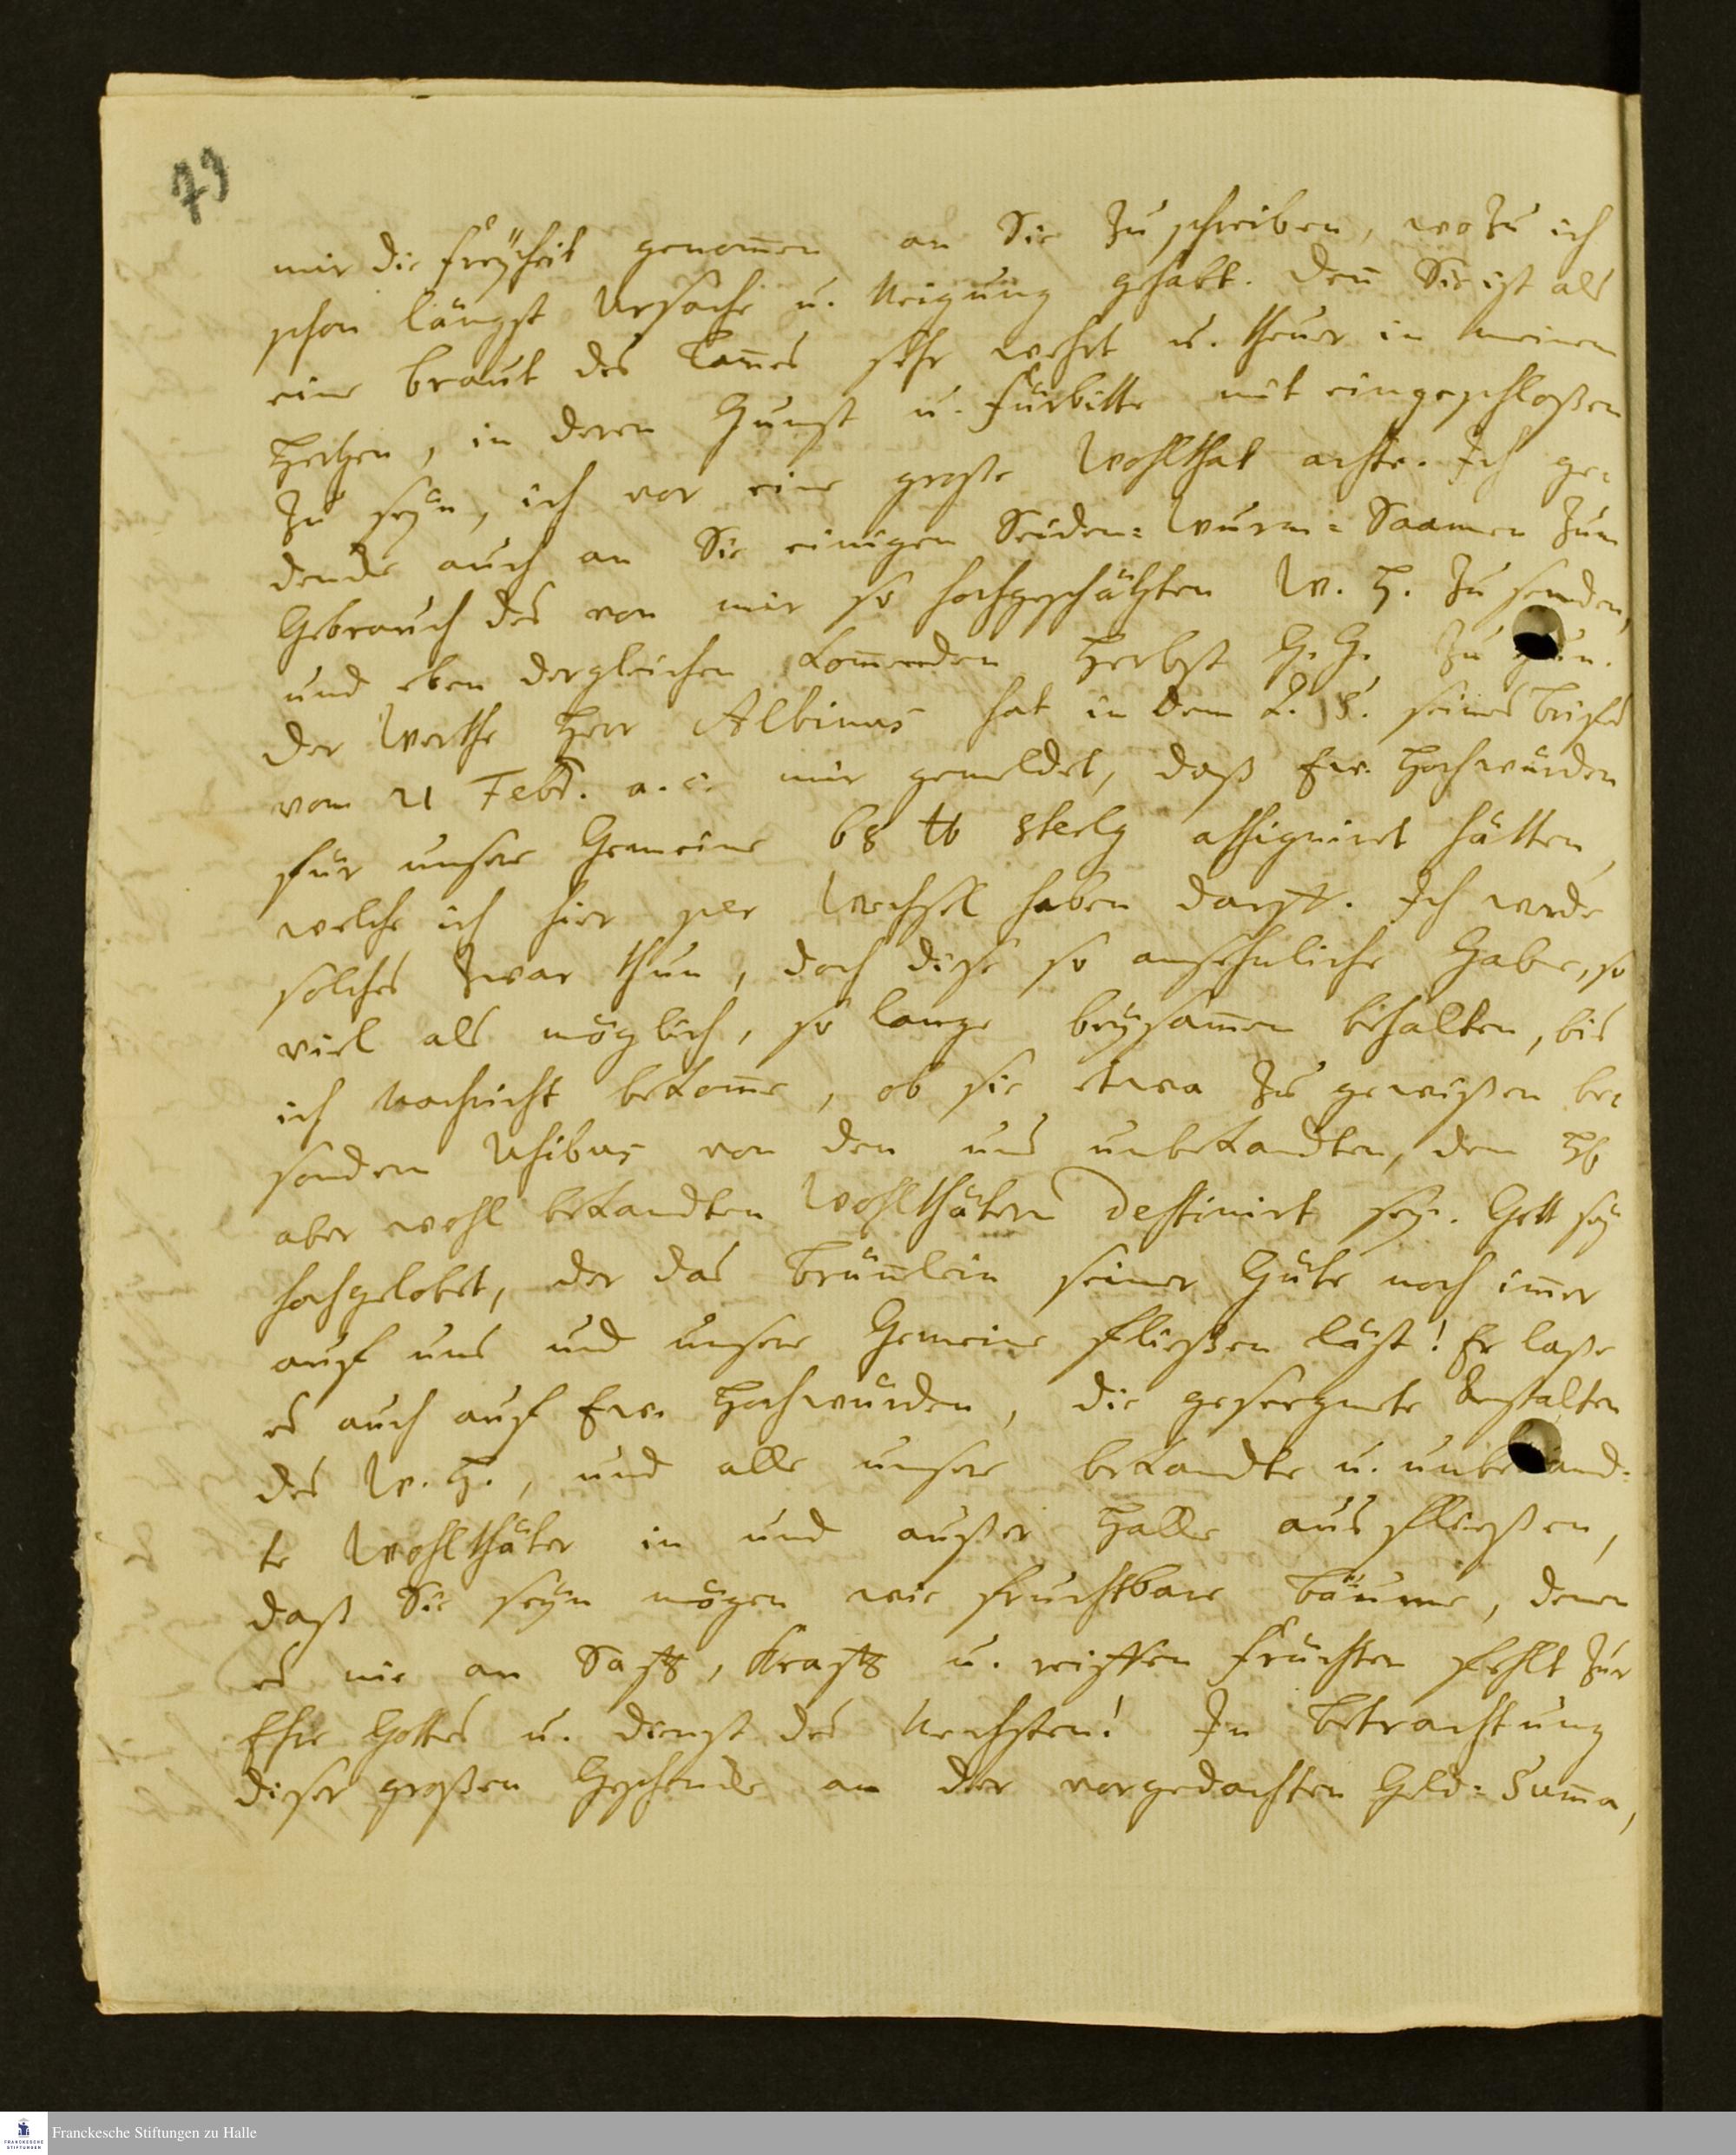 73
mir die Freyheit genom̄en an Sie zu schreiben, wozu ich
schon längst Ursache u. Neigung gehabt. Den̄ Sie ist als
eine Braut des Lam̄es sehr wehrt u. theuer in meinem
Hertzen, in deren Gunst u. Fürbitte mit eingeschloßen
zu seyn, ich vor eine große Wohlthat achte. Ich ge-
dencke auch an Sie einigen Seiden-Wurm-Saamen zum
Gebrauch des von mir so hochgeschätzten W. H. zu senden,
und eben dergleichen kom̄enden Herbst G. G. zu thun.
Der Werthe Herr Albinus hat in dem 2. §. seines Briefes
vom 21 Febr. a. c. mir gemeldet, daß Ew. Hochwürden
für unsere Gemeine 68 lb Sterlg assigniret hätten,
welche ich hier per Wechsel haben darff. Ich werde
solches zwar thun, doch diese so ansehnliche Gabe, so
viel als möglich, so lange beysam̄en behalten, bis
ich Nachricht bekom̄e, ob sie etwa zu gewißen be-
sondern Usibus von den uns unbekandten, dem
aber wohl bekandten Wohlthätern destinirt sey. Gott sey
hochgelobet, der das Brün̄lein seiner Güte noch im̄er
auf uns und unsere Gemeine fließen läßt! Er laße
es auch auf Ew. Hochwürden, die gesegnete Anstalten
des W. H., und alle unsere bekandte u. unbekand-
te Wohlthäter in und außer Halle ausfließen,
daß Sie seyn mögen wie fruchtbare Bäume, denen
es nie an Safft, Krafft u. reiffen Früchten fehlt zur
Ehre Gottes u. Dienst des Nechsten! In Betrachtung
dieser großen Geschencke an der vorgedachten Geld-Sum̄a,
Franckesche Stiftungen zu Halle